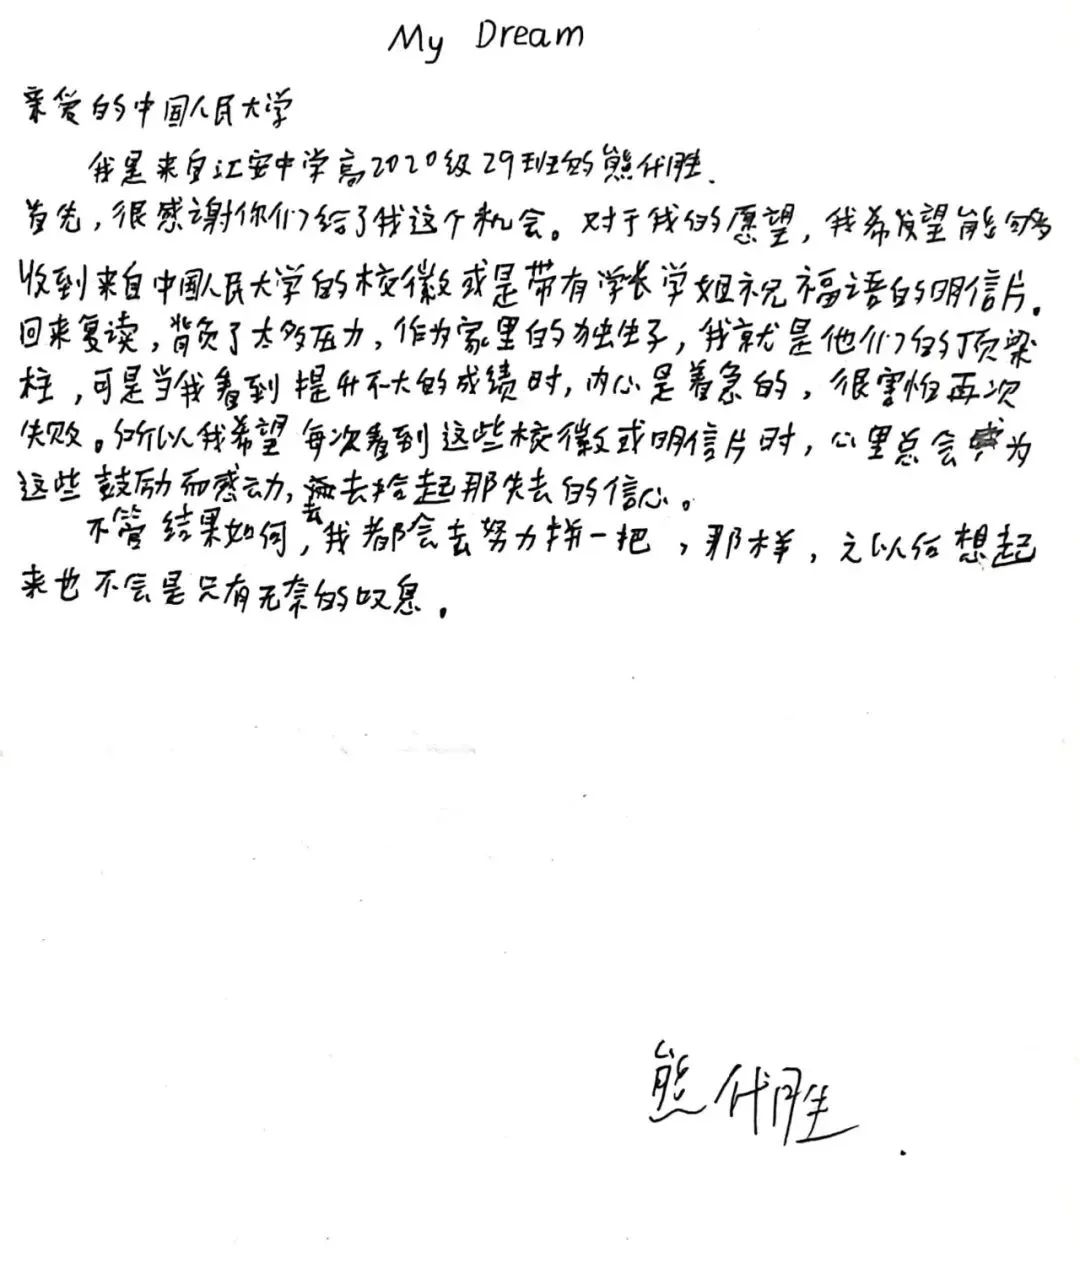 My Dream
亲爱的中国人民大学
我是来自江安中学高2020级29班的熊代胜.
首先，很感谢你们给了我这个机会。对于我的愿望，我希望能够
收到来自中国人民大学的校徽或是带有学长学姐祝福语的明信片.
回来复读，背负了太多压力，作为家里的独生子，我就是他们的顶梁
柱，可是当我看到提升不大的成绩时，内心是着急的，很害怕再次
失败。所以我希望每次看到这些校徽或明信片时，心里总会为
这些鼓励而感动，去拾起那失去的信心。
不管结果如何，我都会去努力拼一把，那样，之以后想起
来也不会是只有无奈的叹息.
熊代胜.